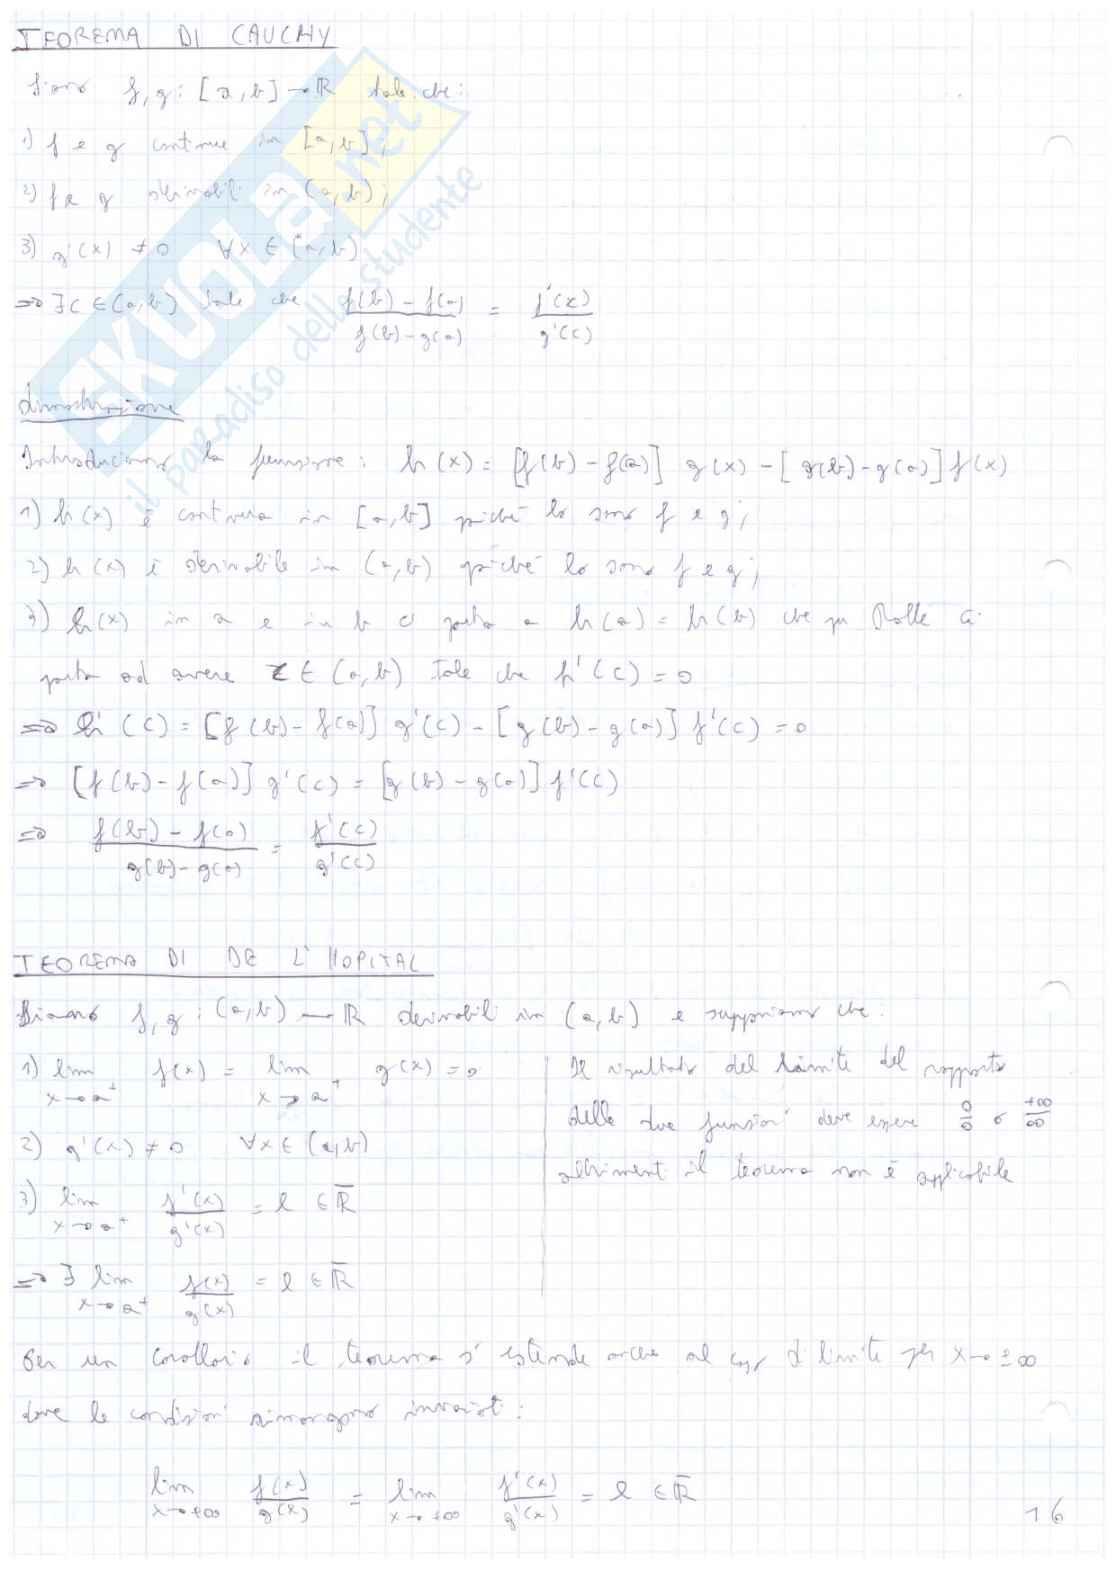 TEOREMA DI CAUCHY
Siano f,g: [a,b] → ℝ tale che:
1) f e g continue in [a,b];
2) f e g derivabili in (a,b);
3) g'(x) ≠ 0 ∀x ∈ (a,b)
⇒ ∃c ∈ (a,b) tale che (f(b) - f(a))/(f(b) - g(a)) = f'(x)/g'(c)
dimostrazione
Introduciamo la funzione: h(x) = [f(b) - f(a)] g(x) - [g(b) - g(a)] f(x)
1) h(x) è continua in [a,b] poiché lo sono f e g;
2) h(x) è derivabile in (a,b) poiché lo sono f e g;
3) h(x) in a e in b ci porta a h(a) = h(b) che per Rolle ci
porta ad avere c ∈ (a,b) tale che h'(c) = 0
⇒ h'(c) = [f(b) - f(a)] g'(c) - [g(b) - g(a)] f'(c) = 0
⇒ [f(b) - f(a)] g'(c) = [g(b) - g(a)] f'(c)
⇒ (f(b) - f(a))/(g(b) - g(a)) = f'(c)/g'(c)
TEOREMA DI DE L'HOPITAL
Siano f,g: (a,b) → ℝ derivabili in (a,b) e supponiamo che:
1) lim x→a⁺ f(x) = lim x→a⁺ g(x) = 0
2) g'(x) ≠ 0 ∀x ∈ (a,b)
3) lim x→a⁺ f'(x)/g'(x) = l ∈ ℝ̅
⇒ ∃ lim x→a⁺ f(x)/g(x) = l ∈ ℝ̅
Il risultato del limite del rapporto
delle due funzioni deve essere 0/0 o +∞/∞
altrimenti il teorema non è applicabile
Per un corollario il teorema si estende anche al caso di limite per x→±∞
dove le condizioni rimangono invariati:
lim x→+∞ f(x)/g(x) = lim x→+∞ f'(x)/g'(x) = l ∈ ℝ̅
16
SKUOLA.net
il paradiso dello studente